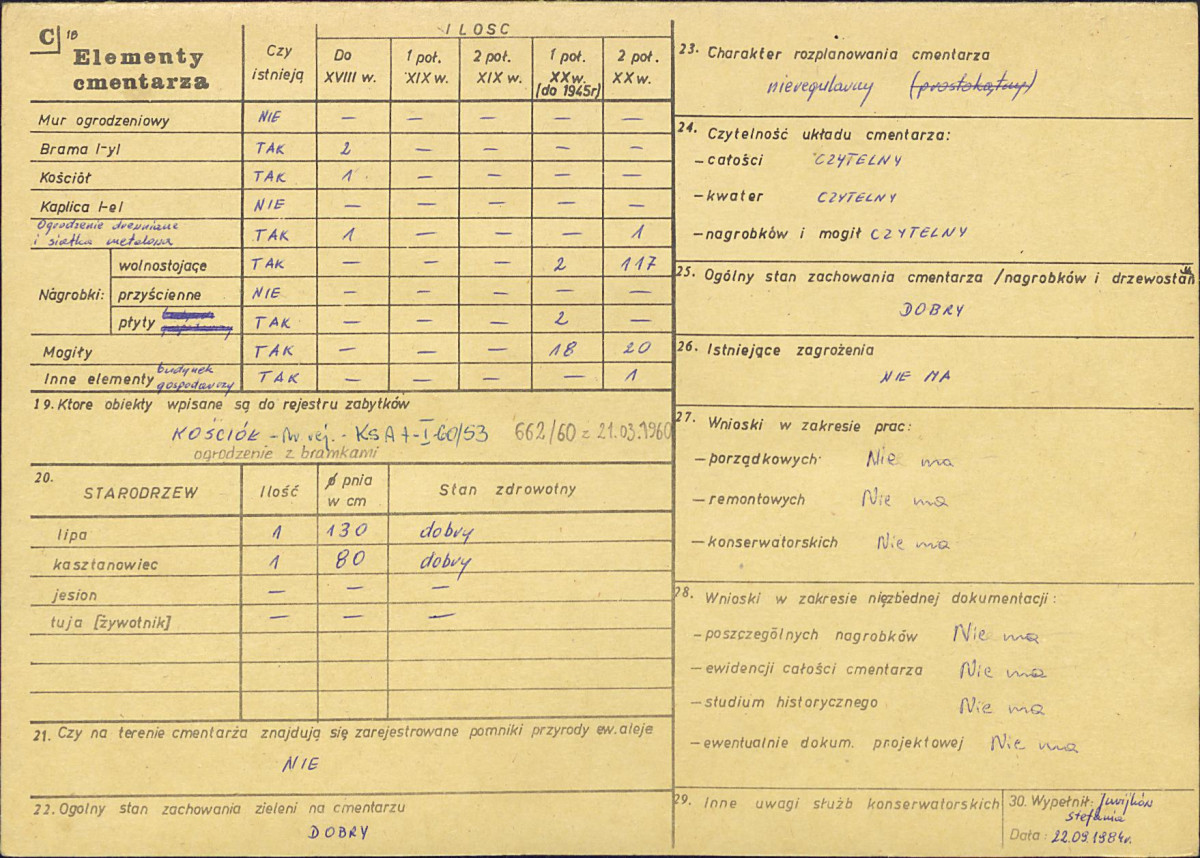 C 18
Elementy cmentarza
Czy istnieją
ILOSC
Do XVIII w.
1 poł. XIX w.
2 poł. XIX w.
1 poł. XX w. (do 1945r)
2 poł. XX w.
Mur ogrodzeniowy NIE — — — — —
Brama l-yl TAK 2 — — — —
Kościół TAK 1 — — — —
Kaplica l-el NIE — — — — —
Ogrodzenie drewniane i siatka metalowa TAK 1 — — — 1
Nagrobki: wolnostojące TAK — — — 2 117
przyścienne NIE — — — — —
płyty TAK — — — 2 —
Mogiły TAK — — — 18 20
Inne elementy budynek gospodarczy TAK — — — — 1
19. Ktore obiekty wpisane są do rejestru zabytków
KOŚCIÓŁ - Nr rej. - KSA t-I-60/53 662/60 z 21.03.1960
ogrodzenie z bramkami
20. STARODRZEW Ilość ∅ pnia w cm Stan zdrowotny
lipa 1 130 dobry
kasztanowiec 1 80 dobry
jesion — — —
tuja [żywotnik] — — —
21. Czy na terenie cmentarza znajdują się zarejestrowane pomniki przyrody ew. aleje
NIE
22. Ogolny stan zachowania zieleni na cmentarzu
DOBRY
23. Charakter rozplanowania cmentarza
nieregularny (prostokątny)
24. Czytelność układu cmentarza:
— całości CZYTELNY
— kwater CZYTELNY
— nagrobków i mogił CZYTELNY
25. Ogólny stan zachowania cmentarza /nagrobków i drzewostan
DOBRY
26. Istniejące zagrożenia
NIE MA
27. Wnioski w zakresie prac:
— porządkowych Nie ma
— remontowych Nie ma
— konserwatorskich Nie ma
28. Wnioski w zakresie niezbednej dokumentacji:
— poszczególnych nagrobków Nie ma
— ewidencji całości cmentarza Nie ma
— studium historycznego Nie ma
— ewentualnie dokum. projektowej Nie ma
29. Inne uwagi służb konserwatorskich
30. Wypełnił:
Stefania
Data: 22.09.1984r.